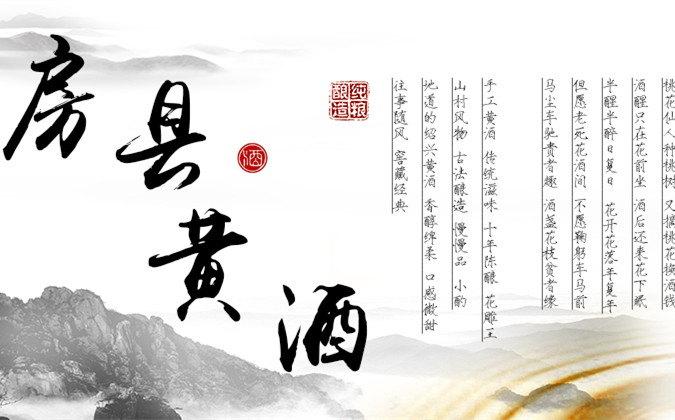 房县黄酒
酒
纯粮
酿造
桃花仙人种桃树 又摘桃花换酒钱
酒醒只在花前坐 酒后还来花下眠
半醒半醉日复日 花开花落年复年
但愿老死花酒间 不愿鞠躬车马前
马尘车驰贵者趣 酒盏花枝贫者缘
手工黄酒 传统滋味 十年陈酿 花雕王
山村风物 古法酿造 慢慢品 小酌
地道的绍兴黄酒 香醇绵柔 口感微甜
往事随风 窖藏经典